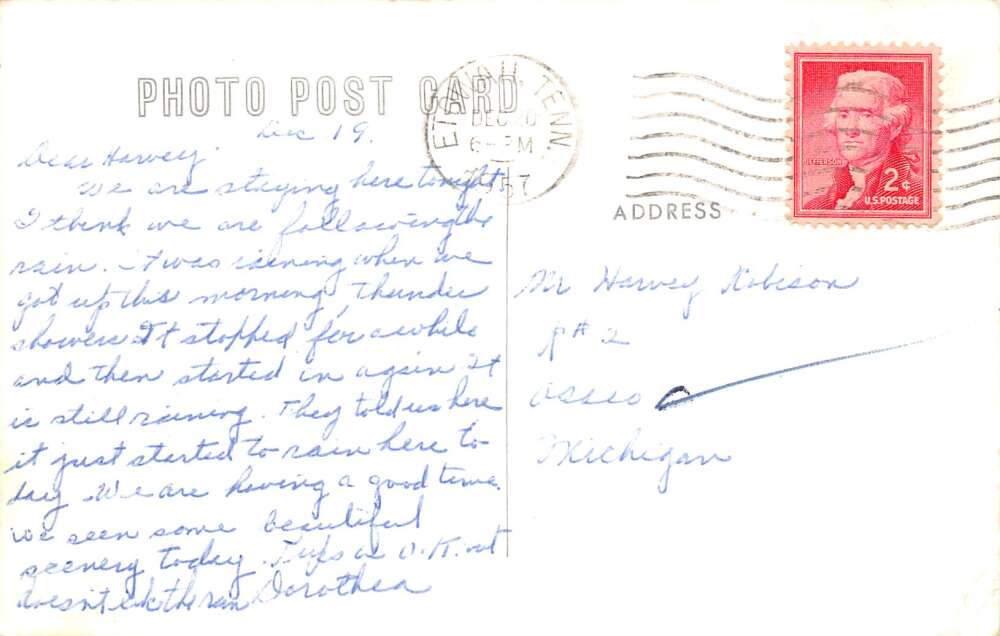 PHOTO POST CARD
ETOWAH, TENN.
DEC 20
6-PM
1957
JEFFERSON
2¢
U.S. POSTAGE
Dec 19.
Dear Harvey.
We are staying here tonight.
I think we are following the
rain. It was raining when we
got up this morning, thunder
showers It stopped for awhile
and then started in again It
is still raining. They told us here
it just started to rain here to-
day. We are having a good time.
we seen some beautiful
scenery today. is O.K. but
doesn't like the rain Dorothea
ADDRESS
Mr Harvey Robison
R# 2
Osseo
Michigan